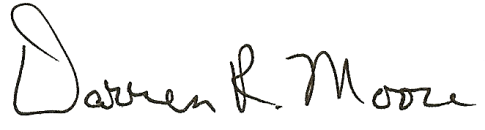 Darren R. Moore